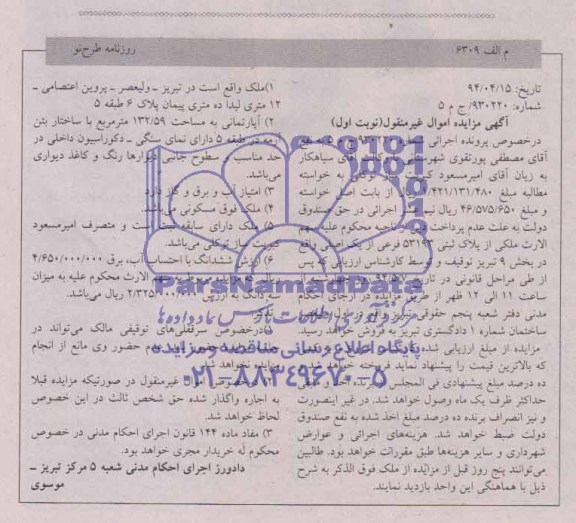 م الف ۶۳۰۹
روزنامه طرح‌نو
تاریخ: ۹۴/۰۴/۱۵
شماره: ۹۳۰۲۲۰/ج م ۵
آگهی مزایده اموال غیرمنقول(نوبت اول)
درخصوص پرونده اجرائی
آقای مصطفی پورتقوی آقای سیاهکار
به زیان آقای میرمسعود به خواسته
مطالبه مبلغ ۴۲۱/۱۳۱/۴۸۰ ریال از بابت اصل خواسته
و مبلغ ۴۶/۵۷۵/۶۵۰ ریال نیم اجرائی در حق صندوق
دولت به علت عدم پرداخت ناحیه محکوم علیه سهم
الارث ملکی از پلاک ثبتی ۵۳۱۹۳ فرعی از یک اصلی واقع
در بخش ۹ تبریز توقیف و توسط کارشناس ارزیابی که پس
از طی مراحل قانونی در تاریخ
ساعت ۱۱ الی ۱۲ ظهر از طریق مزایده در اجرای احکام
مدنی دفتر شعبه پنجم حقوقی تبریز واقع در
ساختمان شماره ۱ دادگستری تبریز به فروش خواهد رسید.
مزایده از مبلغ ارزیابی شده
که بالاترین قیمت را پیشنهاد نماید فروخته خواهد شد
ده درصد مبلغ پیشنهادی فی المجلس از برنده
حداکثر ظرف یک ماه وصول خواهد شد. در غیر اینصورت
و نیز انصراف برنده ده درصد مبلغ اخذ شده به نفع صندوق
دولت ضبط خواهد شد. هزینه‌های اجرائی و عوارض
شهرداری و سایر هزینه‌ها طبق مقررانت خواهد بود. طالبین
می‌توانند پنج روز قبل از مزایده از ملک فوق الذکر به شرح
ذیل با هماهنگی این واحد بازدید نمایند.
۱)ملک واقع است در تبریز ـ ولیعصر ـ پروین اعتصامی ـ
۱۲ متری لیدا ده متری پیمان پلاک ۶ طبقه ۵
۲) آپارتمانی به مساحت ۱۳۲/۵۹ مترمربع با ساختار بتن
آرمه در طبقه ۵ دارای نمای سنگی ـ دکوراسیون داخلی در
حد مناسب و سطوح جانبی دیوارها رنگ و کاغذ دیواری
می‌باشد.
۳) امتیاز آب و برق و گاز دارد
۴) ملک فوق مسکونی می‌باشد.
۵) ملک دارای سابقه ثبتی است و متصرف امیرمسعود
می‌باشد.
۶) ارزش ششدانگ با احتساب آب، برق ۴/۶۵۰/۰۰۰/۰۰۰
ریال الارث محکوم علیه به میزان
سه دانگ به ارزش ۲/۳۲۵/۰۰۰/۰۰۰ ریال می‌باشد.
تذکر:
۱)درخصوص سرقفلی‌های توقیفی مالک می‌تواند در
عدم حضور وی مانع از انجام
مزایده نخواهد شد
۲)درخصوص اموال غیرمنقول در صورتیکه مزایده قبلا
به اجاره واگذار شده حق شخص ثالث در این خصوص
لحاظ خواهد شد.
۳) مفاد ماده ۱۴۴ قانون اجرای احکام مدنی در خصوص
محکوم له خریدار مجری خواهد بود.
دادورز اجرای احکام مدنی شعبه ۵ مرکز تبریز ـ
موسوی
ParsNamadData
پایگاه اطلاع رسانی مناقصه و مزایده
۰۲۱-۸۸۳۴۹۶۷۰-۵